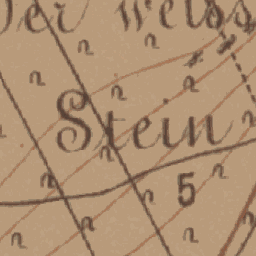 Der weiss
Stein
5